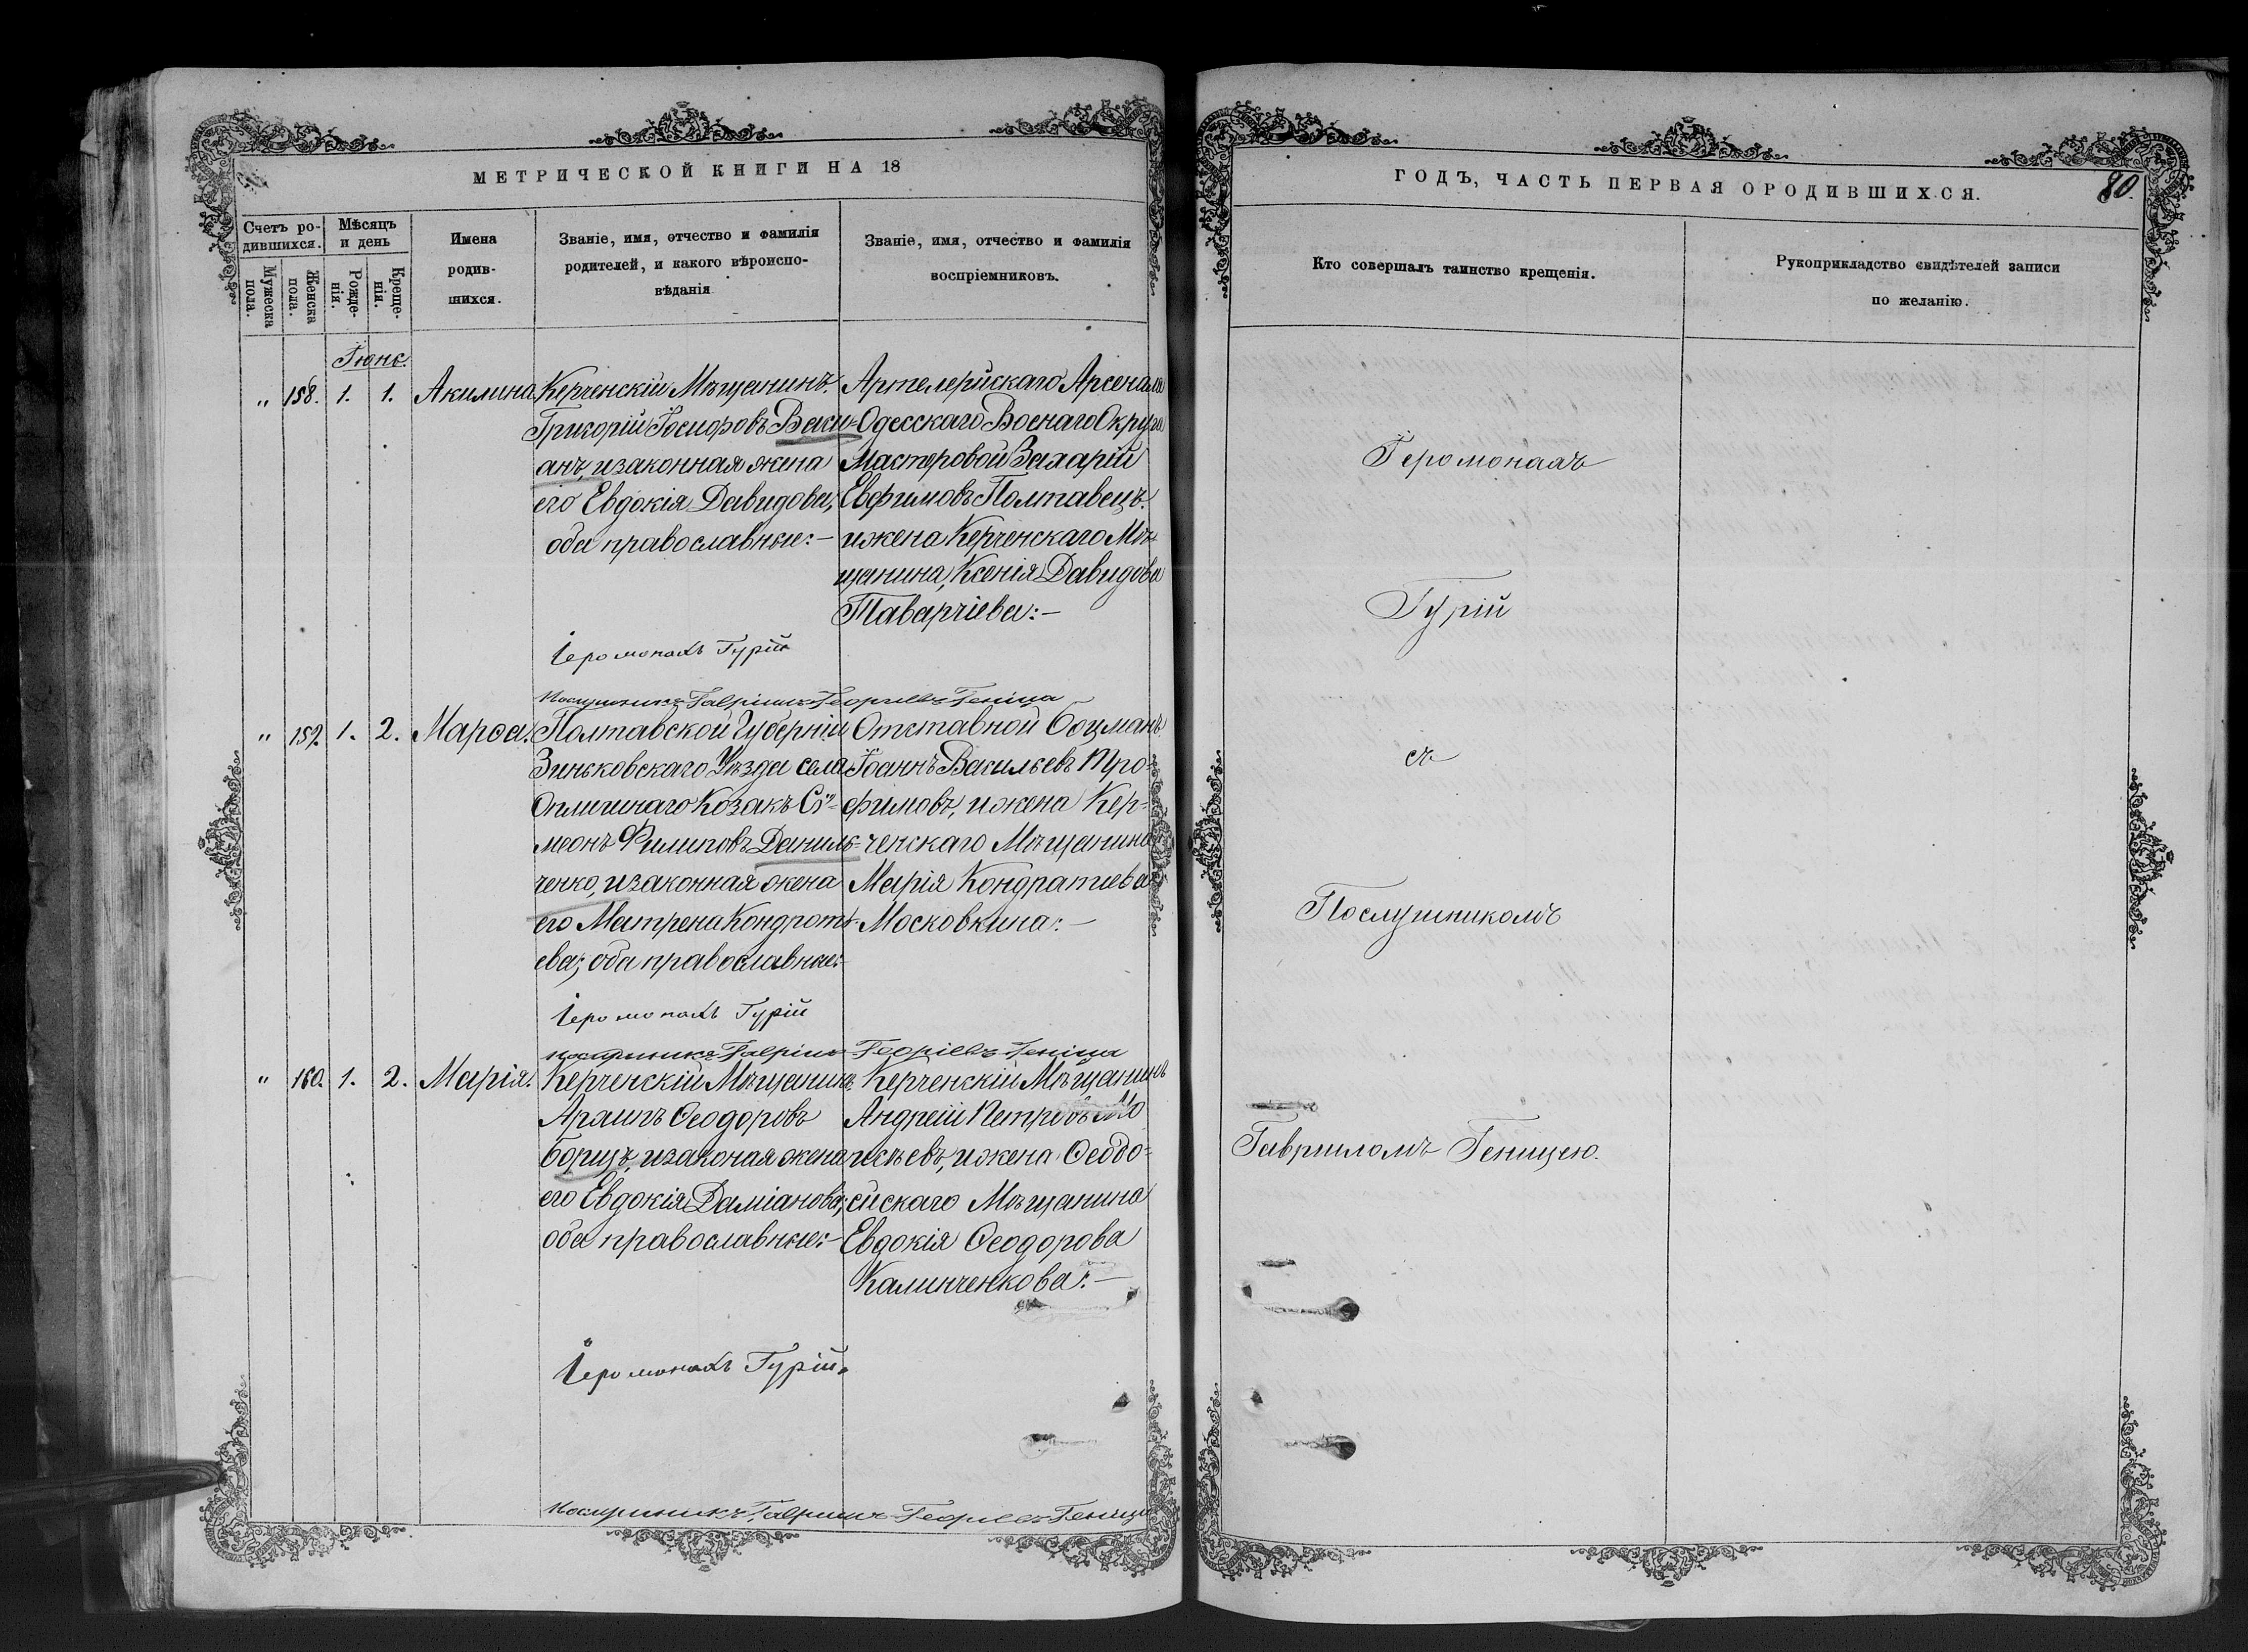 МЕТРИЧЕСКОЙ КНИГИ НА 18
Счетъ ро-
дившихся.
Мужеска
пола.
Женска
пола.
Мѣсяцъ
и день
Рожде-
нія.
Креще-
нія.
Имена
родив-
шихся.
Званіе, имя, отчество и фамилія
родителей, и какого вѣроиспо-
вѣданія
Званіе, имя, отчество и фамилія
воспріемниковъ.
Іюнь.
„ 158. 1. 1. Акилина
Керченскій Мѣщанинъ
Григорій
анъ, и законная жена
его Евдокія Давидова,
оба православные:–
Артелерійскаго Арсенала
Одесскаго Военаго Округа
Мастеровой Захарій
Евфимовъ Полтавецъ
и жена Керченскаго Мѣ-
щанина, Ксенія Давидова
Таварчіева:–
Іеромонахъ Гурій
Послушникъ Гавріилъ Георгіевъ Геница
„ 159. 1. 2. Марѳа.
Полтавской Губерніи
Зиньковскаго Уѣзда села
Опишнаго Козакъ Сѵ-
меонъ Филиповъ Даниль-
ченко, и законная жена
его Матрена Кондрать-
ева; оба православные:
Отставной Боцманъ
Іоаннъ Васильевъ Тро-
фимовъ, и жена Кер-
ченскаго Мѣщанина
Марія Кондратиева
Московкина:–
Іеромонахъ Гурій
послушникъ Гавріилъ Георгіевъ Геница
„ 160. 1. 2. Марія.
Керченскій Мѣщанинъ
Архипъ Ѳеодоровъ
Борщъ, и законая жена
его Евдокія Даміанова;
оба православные:–
Керченскій Мѣщанинъ
Андрей Петровъ Мо
исѣевъ, и жена Ѳеодо-
сійскаго Мѣщанина
Евдокія Ѳеодорова
Калинченкова:–
Іеромонахъ Гурій.
Послушникъ Гавріилъ Георгіевъ Геница
ГОДЪ, ЧАСТЬ ПЕРВАЯ О РОДИВШИХСЯ.
80.
Кто совершалъ таинство крещенія.
Рукоприкладство свидѣтелей записи
по желанію.
Іеромонахъ
Гурій
съ
Послушникомъ
Гавриломъ Геницею.